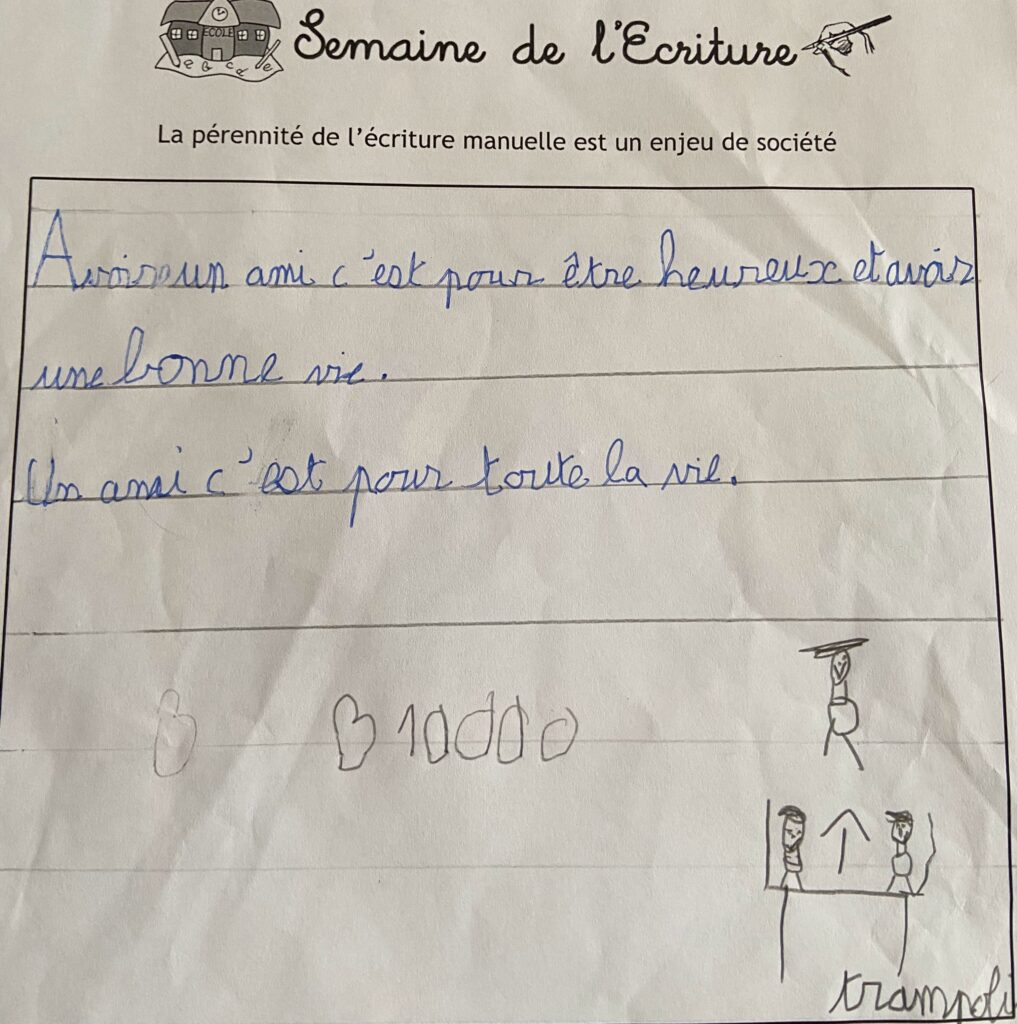 ECOLE
Semaine de l'Ecriture
La pérennité de l'écriture manuelle est un enjeu de société
Avoir un ami c'est pour être heureux et avoir
une bonne vie.
Un ami c'est pour toute la vie.
10000
trampoli